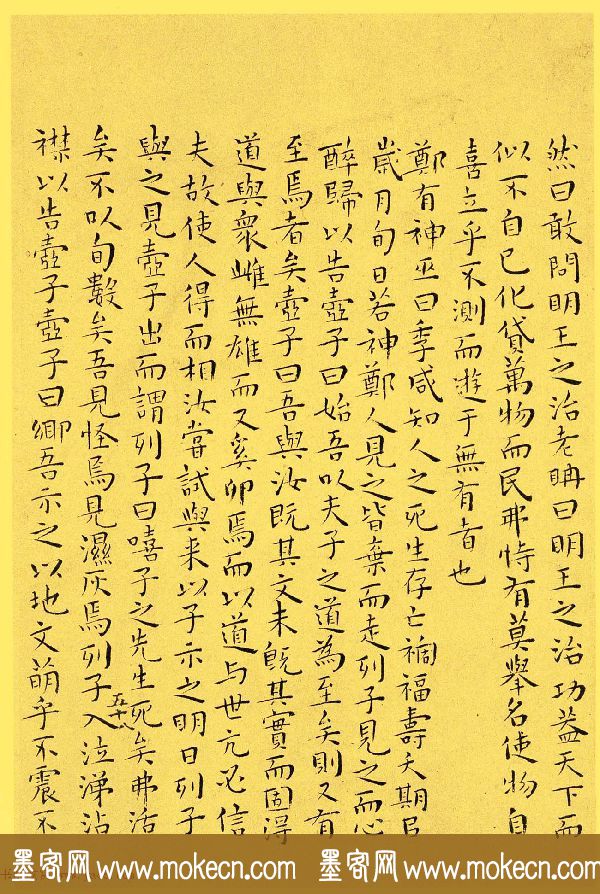 然曰敢問明王之治老聃曰明王之治功蓋天下而
似不自已化貸萬物而民弗恃有莫舉名使物自
喜立乎不測而遊于無有者也
鄭有神巫曰季咸知人之死生存亡禍福壽夭期以
歲月旬日若神鄭人見之皆棄而走列子見之而心
醉歸以告壺子曰始吾以夫子之道為至矣則又有
至焉者矣壺子曰吾與汝既其文未既其實而固得
道與衆雌無雄而又奚卵焉而以道与世亢必信
夫故使人得而相汝嘗試與来以子示之明日列子
與之見壺子出而謂列子曰嘻子之先生死矣弗活
矣不以旬數矣吾見怪焉見濕灰焉列子入泣涕沾
襟以告壺子壺子曰鄉吾示之以地文萌乎不震不
五十八
墨客网 www.mokecn.com 墨客网 www.mokecn.com